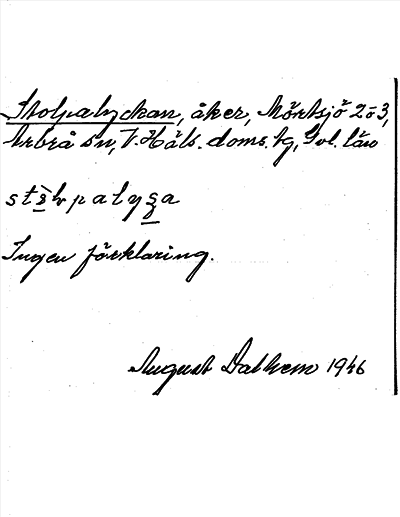 Stolpalyckan, åker, Mörtsjö 2 o 3,
Arbrå sn, V. Häls. doms. tg, Gvl. län
Ingen förklaring.
August Dalhem 1946